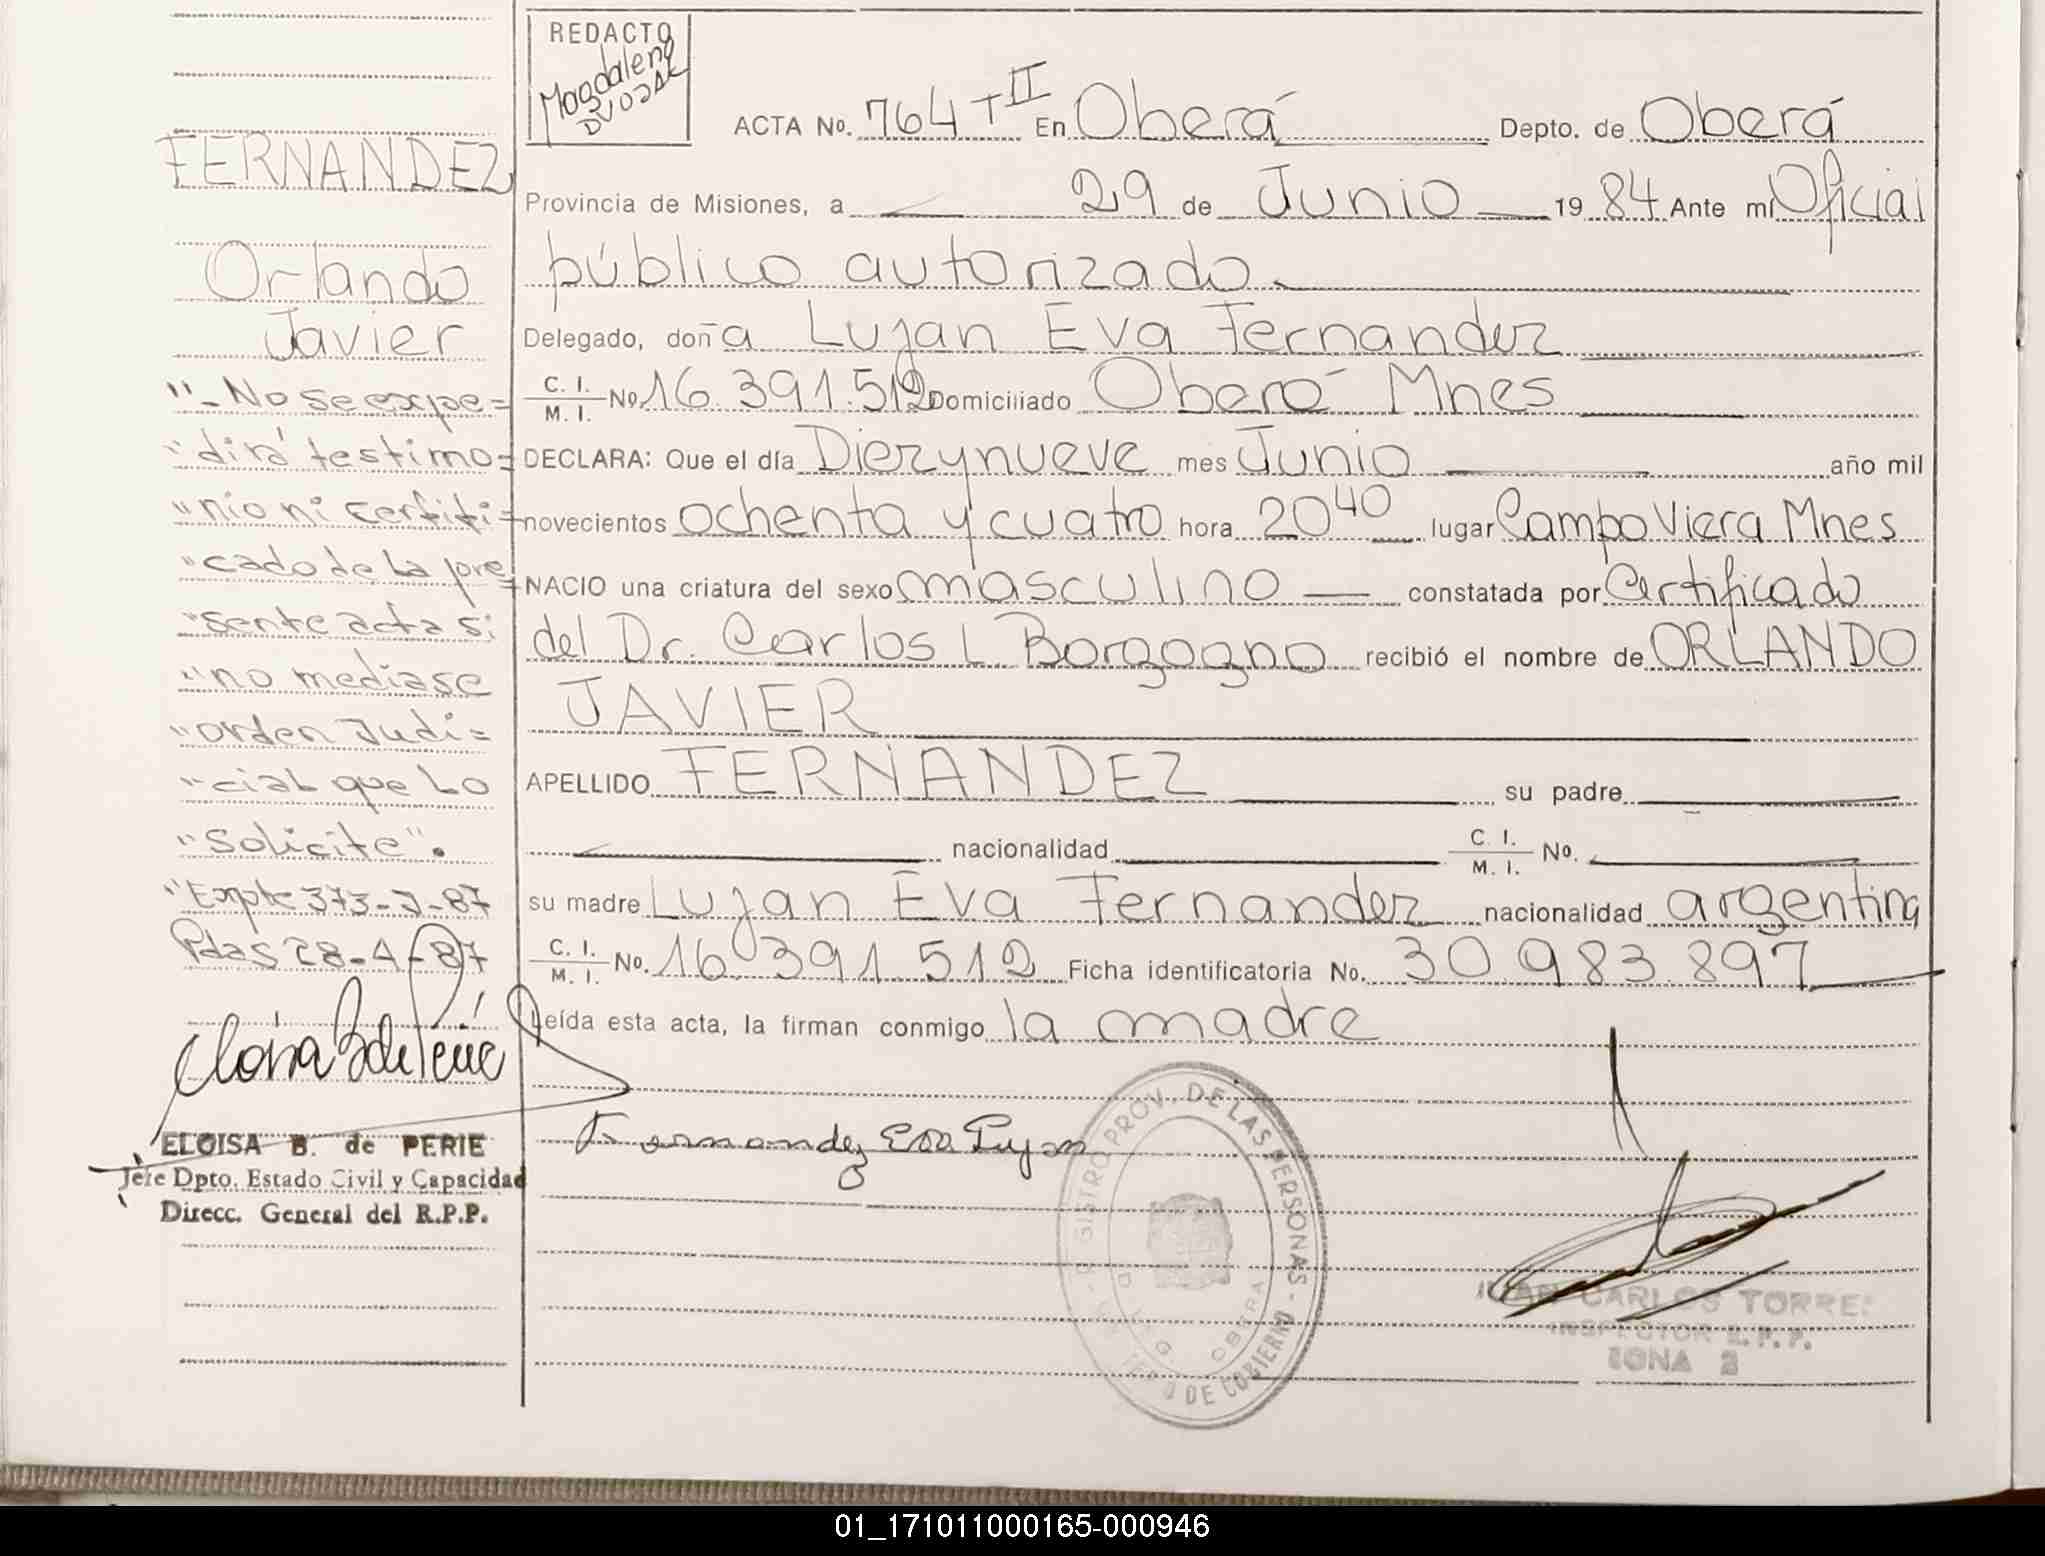 REDACTO
Magdalena
DUDAK
ACTA No. 764 T II En Oberá Depto. de Oberá
Provincia de Misiones, a 29 de Junio 19 84 Ante mí Oficial
público autorizado
Delegado, doña Lujan Eva Fernandez
C. I. / M. I. No. 16.391.512 Domiciliado Oberá Mnes
DECLARA: Que el día Diezynueve mes Junio año mil
novecientos ochenta y cuatro hora 20 40 lugar Campo Viera Mnes
NACIO una criatura del sexo masculino constatada por Certificado
del Dr. Carlos L Borgogno recibió el nombre de ORLANDO
JAVIER
APELLIDO FERNANDEZ su padre
nacionalidad C. I. / M. I. No.
su madre Lujan Eva Fernandez nacionalidad argentina
C. I. / M. I. No. 16.391.512 Ficha identificatoria No. 30.983.897
Leída esta acta, la firman conmigo la madre
Fernandez Eva Lujan
REGISTRO PROV. DE LAS PERSONAS - OBERA
DE GOBIERNO
JUAN CARLOS TORRES
INSPECTOR R.P.P.
ZONA 2
FERNANDEZ
Orlando
Javier
"-No se expe=
"dirá testimo=
"nio ni certifi=
"cado de la pre=
"sente acta si
"no mediase
"orden Judi=
"cial que lo
"solicite".
"Expte 373-J-87
Pdas 28-4-87
ELOISA B. de PERIE
Jefe Dpto. Estado Civil y Capacidad
Direcc. General del R.P.P.
01_171011000165-000946